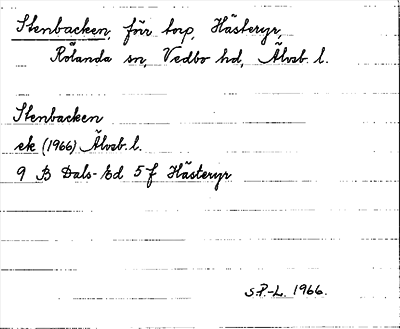 Stenbacken, förr torp, Hästeryr,
Rölanda sn, Vedbo hd, Älvsb. l.
Stenbacken
ek (1966) Älvsb. l.
9 B Dals-Ed 5f Hästeryr
S.P.-L. 1966.